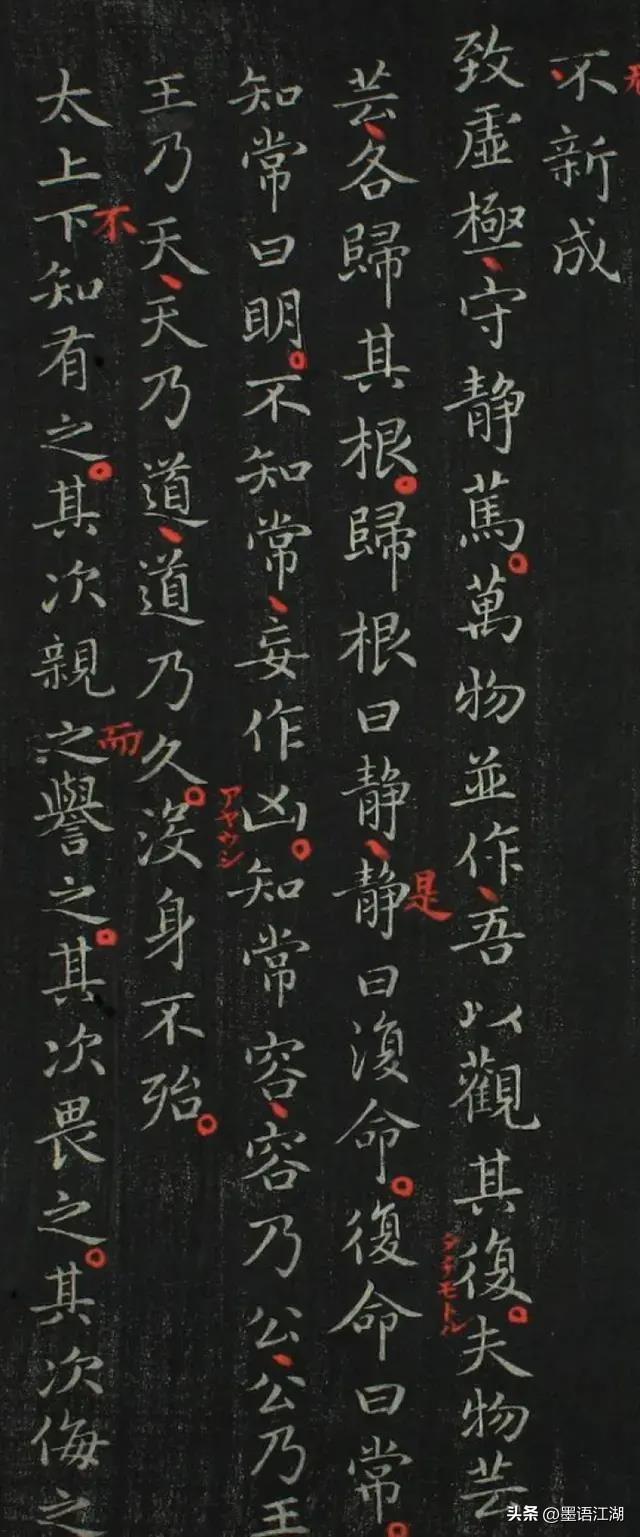 不新成
致虛極、守静篤。萬物並作、吾以觀其復。夫物芸
芸、各歸其根。歸根曰静、静曰復命。復命曰常。
是
知常曰明。不知常、妄作凶。知常容、容乃公、公乃王
王乃天、天乃道、道乃久。沒身不殆。
アヤウシ
太上下知有之。其次親之譽之。其次畏之。其次侮之
不
而
头条 @墨语江湖